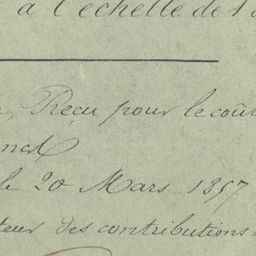 a l'echelle de 1
Reçu pour le coû
le 20 Mars 1857
teur des contributions